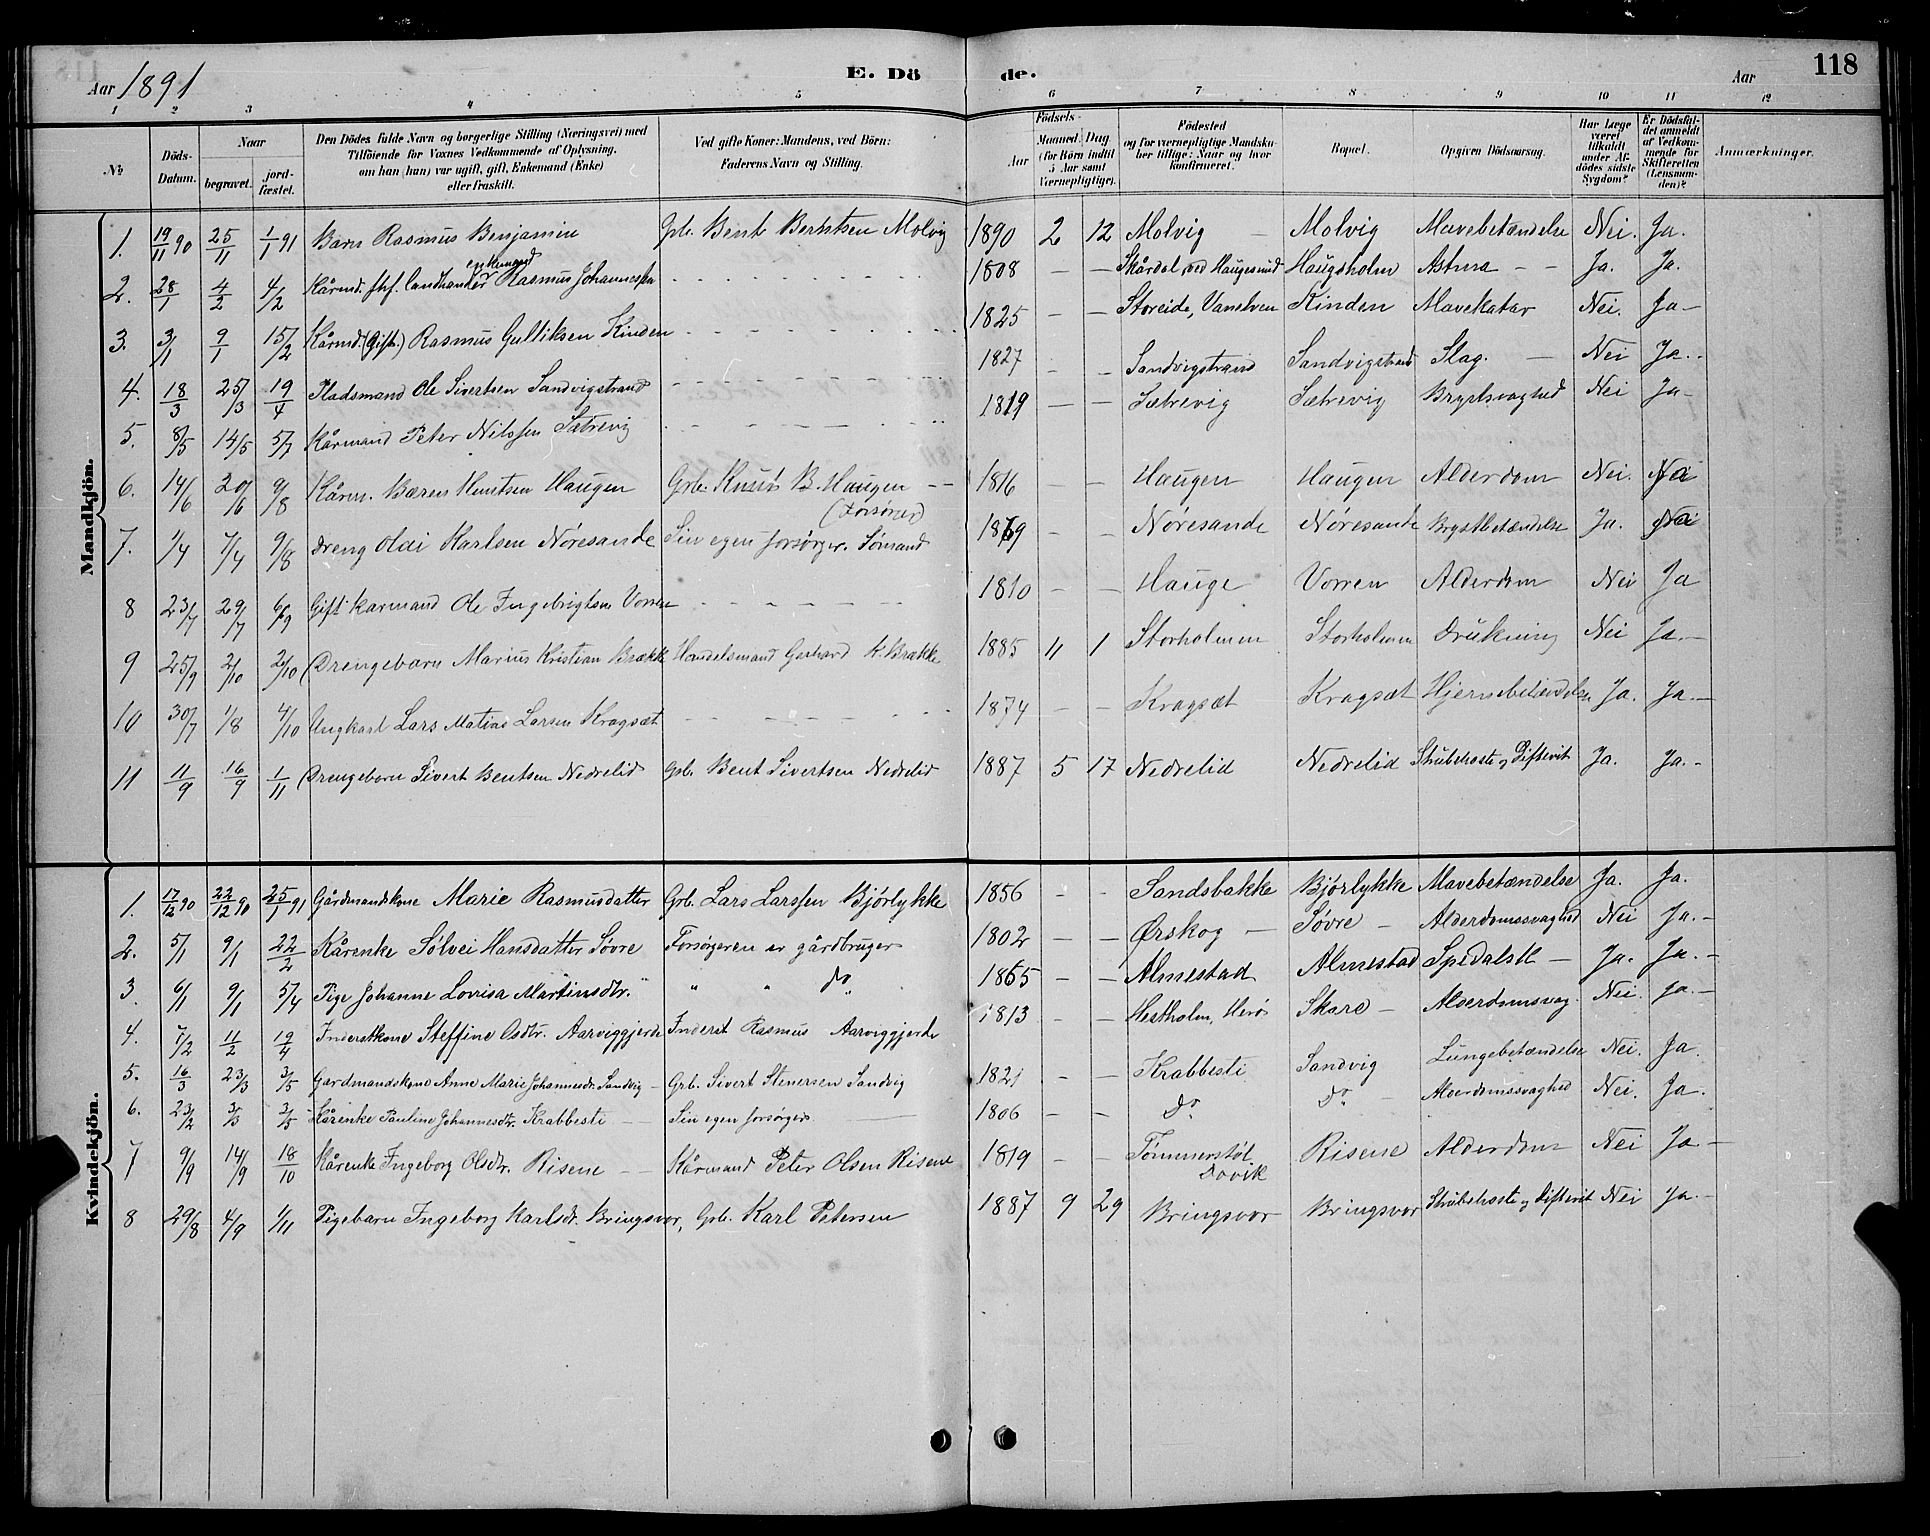 118
Aar 1891 E. Dö de. Aar
1 2 3 4 5 6 7 8 9 10 11 12
№ Döds-Datum. Naar begravet. jord-fæstet. Den Dödes fulde Navn og borgerlige Stilling (Næringsvei) med Tilföiende for Voxnes Vedkommende af Oplysning, om han (hun) var ugift, gift, Enkemand (Enke) eller fraskilt. Ved gifte Koner: Mandens, ved Börn: Faderens Navn og Stilling. Födsels- Aar Maaned. Dag (for Börn indtil 5 Aar samt Værnepligtige). Födested og for værnepligtige Mandskaber tillige: Naar og hvor konfirmeret. Bopæl. Opgiven Dödsaarsag. Har Læge været tilkaldt under Afdödes sidste Sygdom? Er Dödsfaldet anmeldt af Vedkommende for Skifteretten (Lensmanden)? Anmærkninger.
Mandkjön.
1. 19/11 90 25/11 1/1 91 Barn Rasmus Benjamin Gbr. Bent Berntsen Molvig 1890 2 12 Molvig – Molvig Mavebetændelse Nei. Ja.
enkemand
2. 28/1 4/2 4/2 Kårmd. fhf. landhandler Rasmus Johannessen 1808 – – Skårdal ved Haugesund Haugsholm Astma – – Ja. Ja.
3. 3/1 9/1 15/2 Kårmd. (Gift.) Rasmus Gulliksen Kinden 1825 – – Storeide, Vanelven Kinden Mavekatar Nei. Ja –
4. 18/3 25/3 19/4 Pladsmand Ole Sivertsen Sandvigstrand 1827 – – Sandvigstrand Sandvigstrand Slag. – Nei Ja.
5. 8/5 14/5 5/7 Kårmand Peter Nilssen Sætrevig 1819 – – Sætrevig Sætrevig Brystsvaghed Nei Ja –
6. 14/6 20/6 9/8 Kårm. Bæren Knutsen Haugen Grb. Knut B. Haugen – – (Forsørger) 1816 – – Haugen Haugen Alderdom Nei. Nei
7. 1/4 7/4 9/8 Dreng Oldi Karlsen Nøresande Sin egen forsørger. Sømand 1869 – – Nøresande Nøresande Brystbetændelse Ja. Nei
8 23/7 29/7 6/9 Gift karmand Ole Ingebrigtsen Vorren 1810 – – Hauge Vorren Alderdom Nei Ja
9 25/9 2/10 2/10 Drengebarn Marius Kristian Brække Handelsmand Gerhard K. Brække 1885 11 1 Storholmen Storholmen Drukning Nei Ja. –
10 30/7 1/8 4/10 Ungkarl Lars Matias Larsen Kragsæt 1874 – – Kragsæt Kragsæt Hjernebetændelse Ja. Ja. –
11 11/9 16/9 1/11 Drengebarn Sivert Bentsen Nedrelid Gbr. Bent Sivertsen Nedrelid 1887 5 17 Nedrelid Nedrelid Strubehoste og Difterit Ja. Ja. –
Kvindekjön.
1. 17/12 90 22/12 90 25/1 91 Gårdmandskone Marie Rasmusdatter Grb. Lars Larssen Bjørlykke 1856 – – Sandsbakke Bjørlykke Mavebetændelse Ja. Ja.
2. 5/1 9/1 22/2 Kårenke Sølvei Hansdatter Søvre Forsørgeren er gårdbruger 1802 – – Ørskog – Søvre – Alderdomssvaghed Nei Ja. –
3. 6/1 9/1 5/4 Pige Johanne Lovisa Martinsdtr. " " " do 1865 – – Almestad Almestad Spedalsk – Ja. Ja. –
4. 7/2 11/2 19/4 Inderstkone Steffine Osdtr. Aarviggjerde Inderst Rasmus Aarviggjerde 1813 – – Hestholm, Herø Skare – Alderdomssvag. Nei. Ja. –
5. 16/3 23/3 3/5 Gardmandskone Anne Marie Johannesdr. Sandvig – Grb. Sivert Stenersen Sandvig 1821 – – Krabbesti Sandvig Lungebetændelse Nei. Ja.
6. 23/2 3/3 3/5 Kårenke Pauline Johannesdtr. Krabbesti – Sin egen forsørger 1806 – – Do Do – Alderdomssvaghed Nei. Ja. –
7 9/9 14/9 18/10 Kårenke Ingeborg Olsdtr. Risene – – Kårmand Peter Olsen Risene 1819 – – Tømmerstøl Dovik Risene Alderdom Nei Ja –
8 29/8 4/9 1/11 Pigebarn Ingeborg Karlsdr. Bringsvor, Grb. Karl Petersen 1887 9 29 Bringsvor Bringsvor Strubehoste og Difterit Nei Ja. –